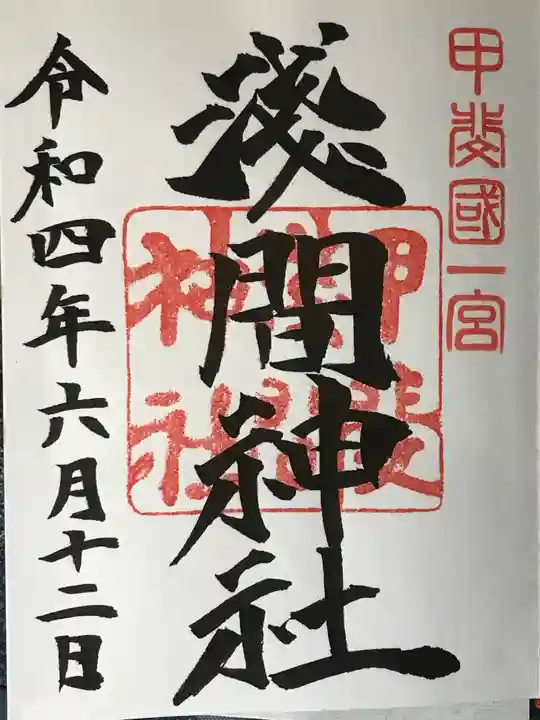 甲斐國一宮
淺間神社
令和四年六月十二日